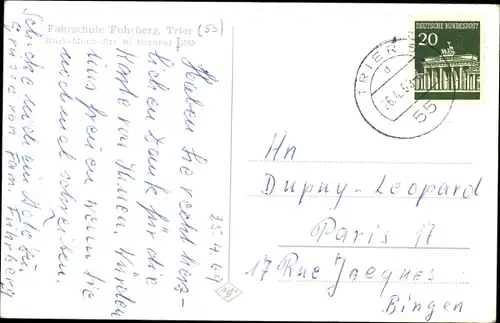 Fahrschule Fuhrberg, Trier (55)
Karl-Marx-Str. 91 Fernruf
25.4.69
Haben Sie recht herz-
lichen Dank für die
Karte von Ihnen. Würden
uns freuen wenn Sie
nochmal schreiben.
Schicke auch ein
Grüsse von Fam. Fuhrberg
DEUTSCHE BUNDESPOST
20
TRIER
d
26.4.69
55
Hn
Dupuy-Leopard
Paris 17
17 Rue Jacques
Bingen